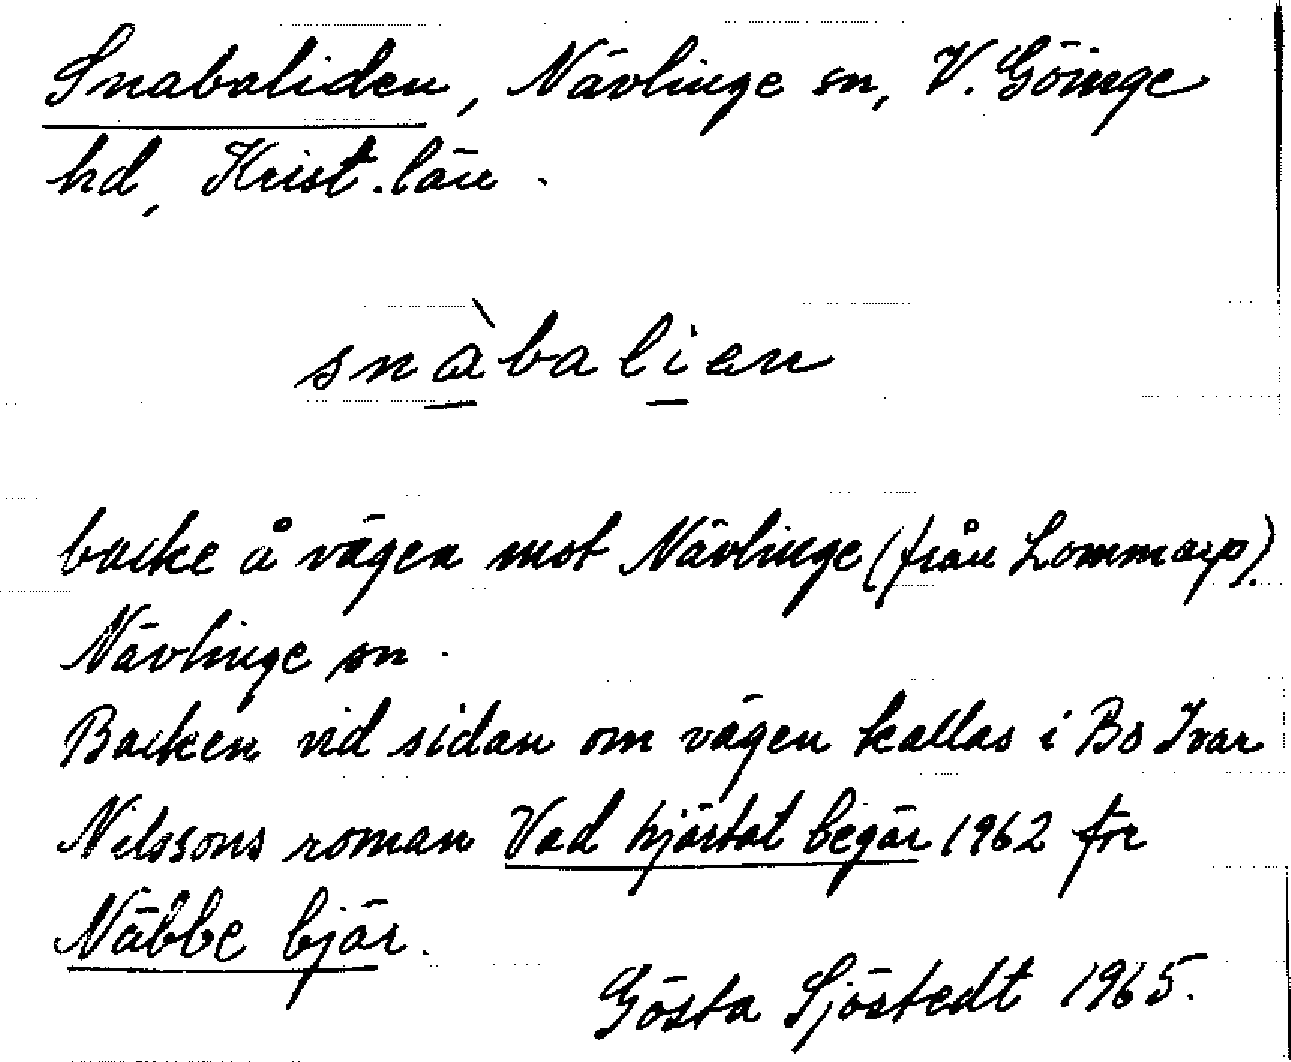 Snabaliden, Nävlinge sn, V. Göinge
hd, Krist. län.
snàbalien
backe å vägen mot Nävlinge (från Lommarp).
Nävlinge sn.
Backen vid sidan om vägen kallas i Bo Ivar
Nilssons roman Vad hjärtat begär 1962 för
Näbbe bjär.
Gösta Sjöstedt 1965.